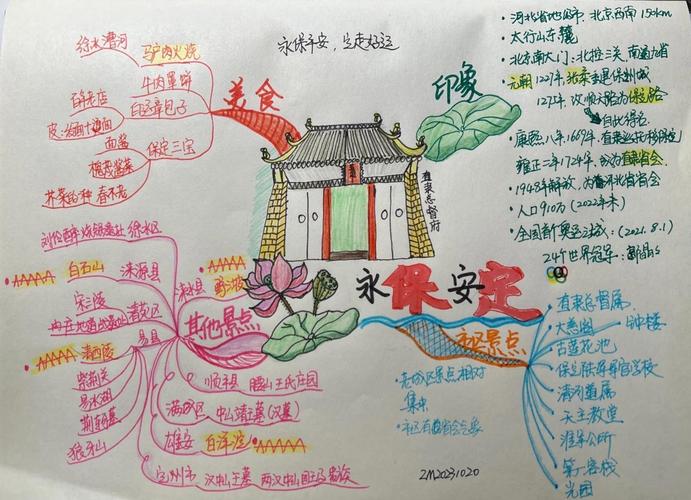 永保平安，定走好运
美食
驴肉火烧
徐水漕河
牛肉罩饼
白运章包子
百年老店
保定三宝
面酱
槐茂酱菜
春不老
印象
河北省地级市，北京西南150km
太行山东麓
北京南大门，北控三关，南通九省
元朝1227年
1275年，改顺天路为保定路
自此得名
康熙八年，1669年，直隶巡抚移保定
雍正二年1724年，成为直隶省会
1948年解放，为河北省省会
人口910万（2022年末）
(2021.8.1)
24个世界冠军
直隶总督府
永保安定
其他景点
徐水区
涞源县
白石山
清苑区
宋辽
冉庄地道战
易县
清西陵
紫荆关
易水湖
荆轲塔
狼牙山
涞水县
野三坡
顺平县
腰山王氏庄园
满城区
中山靖王墓（汉墓）
雄安
白洋淀
定州市
汉中山王墓
市区景点
老城区景点相对
集中
直隶总督署
大慈阁
钟楼
古莲花池
保定陆军军官学校
清河道署
天主教堂
淮军公所
第一客栈
光园
ZM20231020